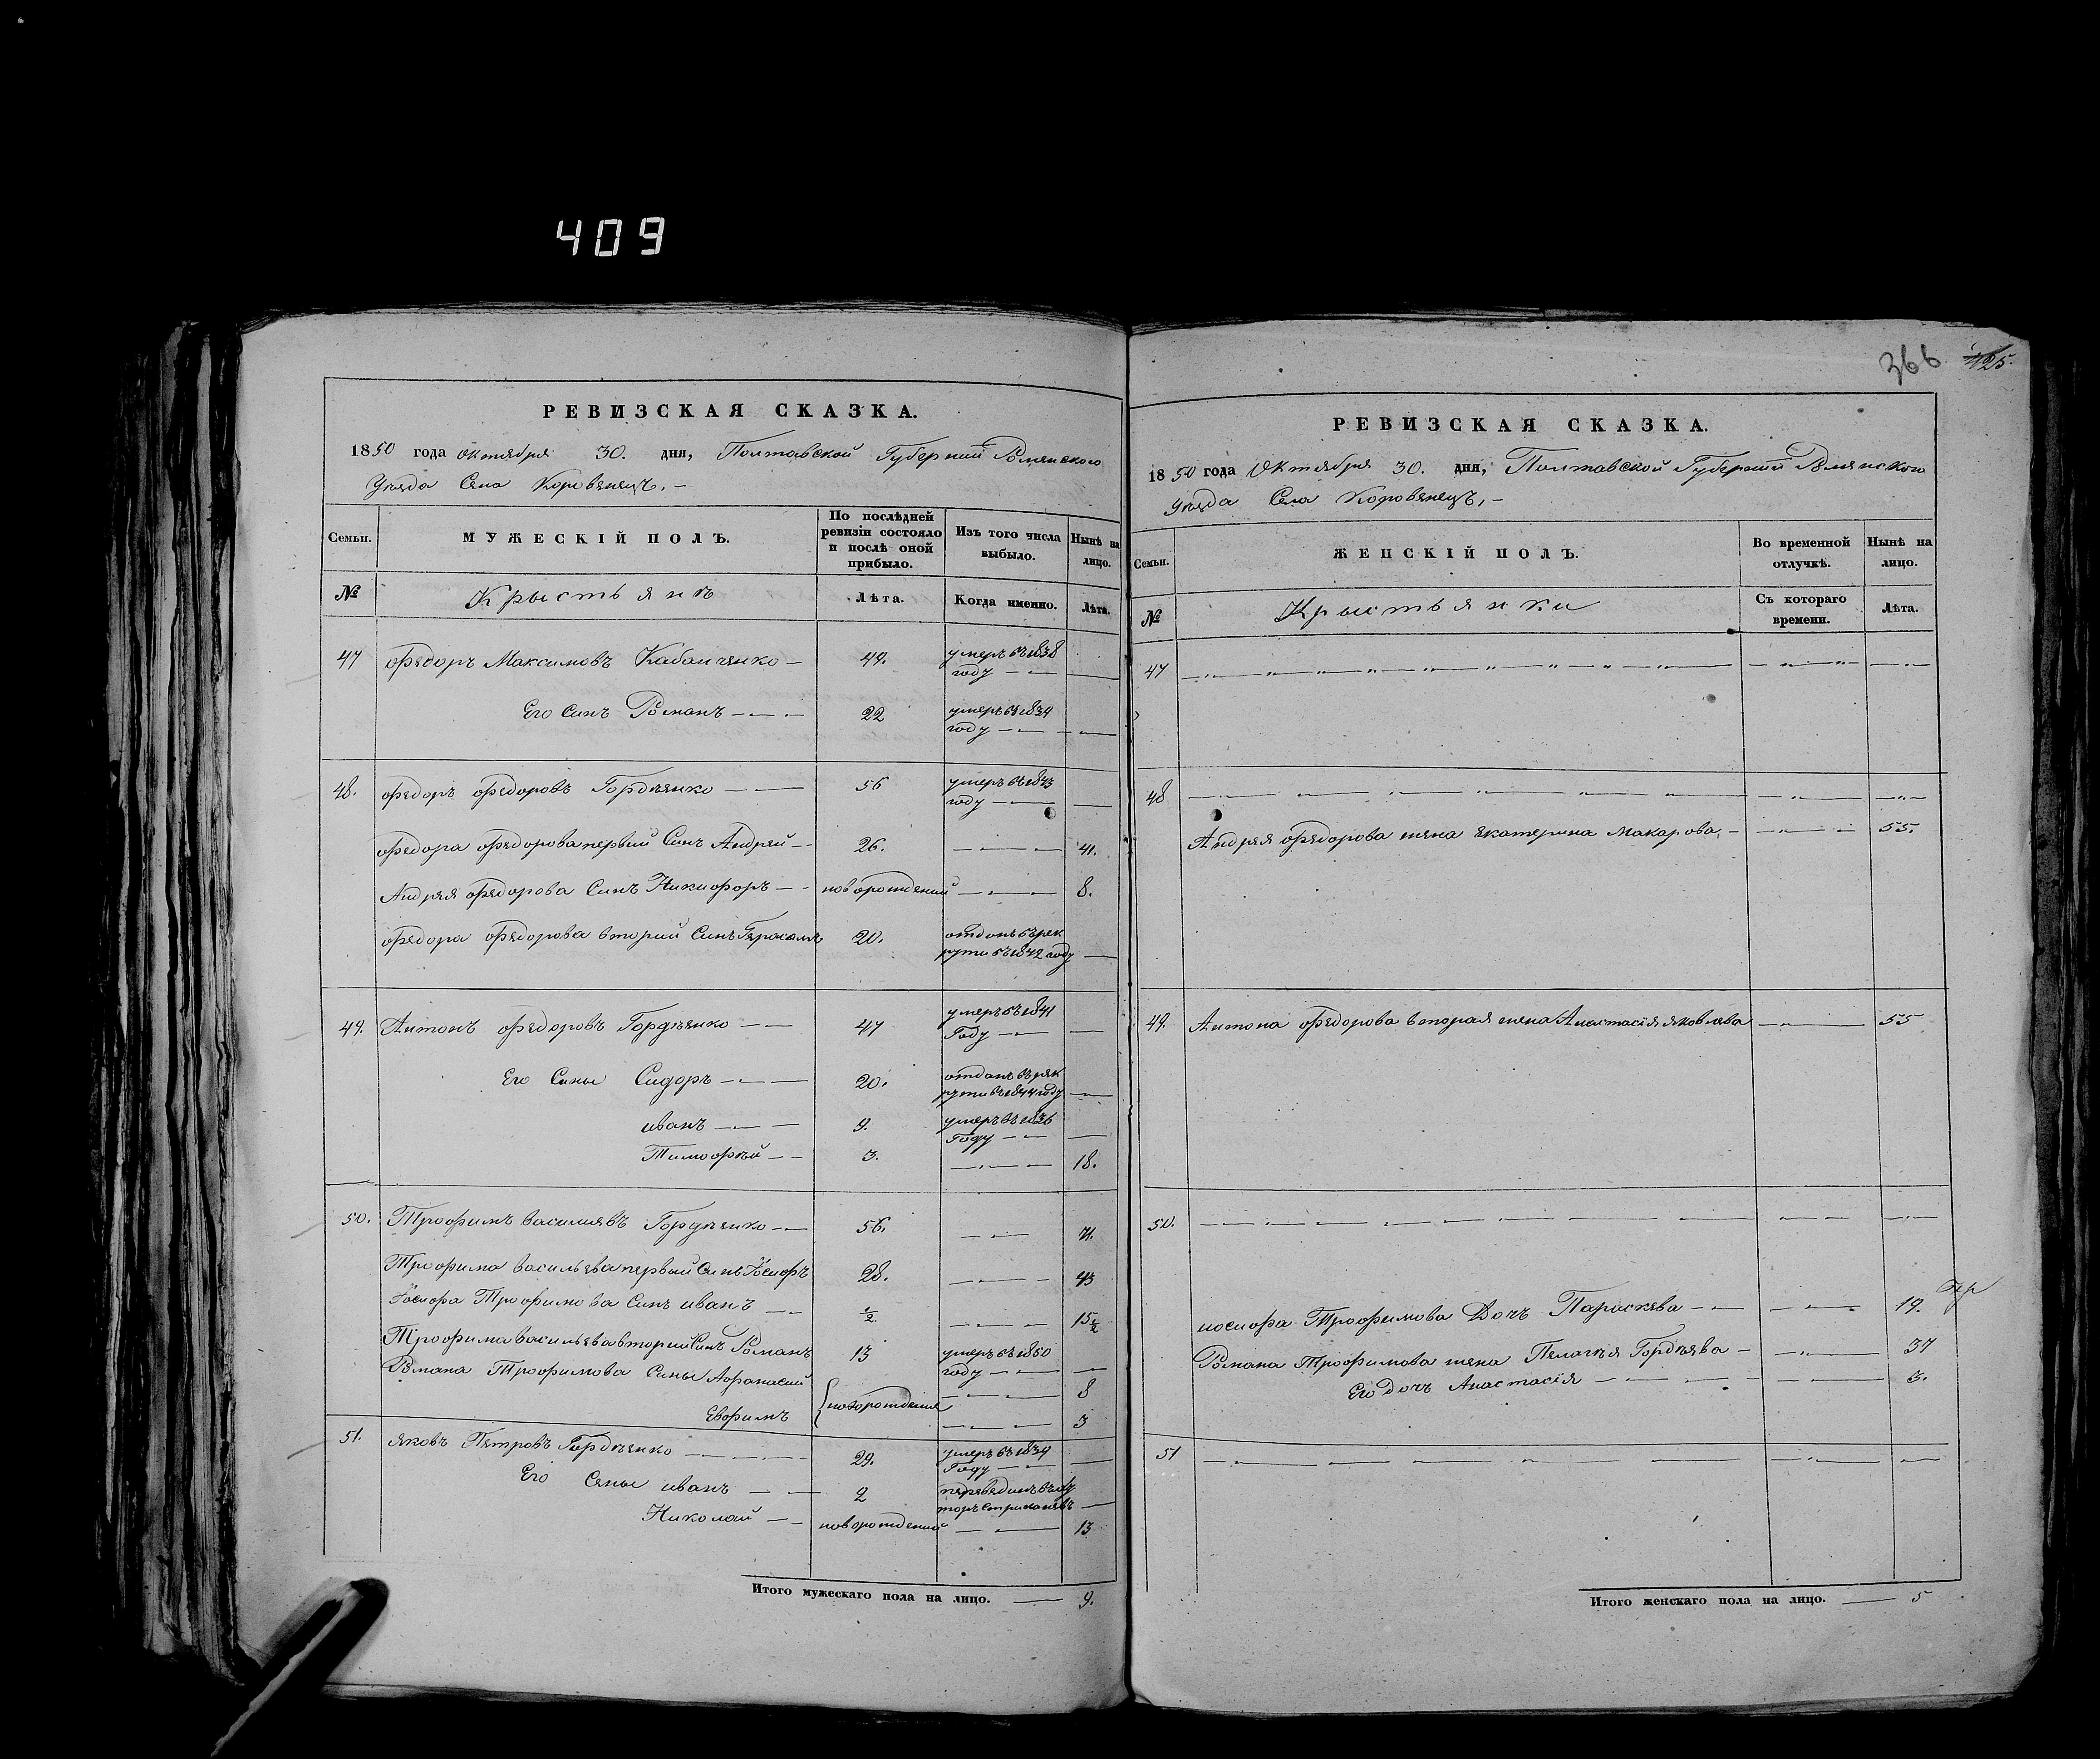 409
РЕВИЗСКАЯ СКАЗКА.
1850 года Октября 30. дня, Полтавской Губернии Роменского
Уезда Села Коровинецъ.
Семьи.
МУЖЕСКІЙ ПОЛЪ.
По послѣдней ревизіи состояло и послѣ оной прибыло.
Изъ того числа выбыло.
Нынѣ на лицо.
№
Крыстьянъ
Лѣта.
Когда именно.
Лѣта.
47 Федоръ Максимовъ 49. умеръ въ 1838
году
Его Синъ Романъ 22 умеръ въ 1834
году
48. Федоръ Федоровъ Гордѣенко 56 умеръ въ 1843
году
Федора Федорова первий Синъ Андрей 26. 41.
Андрея Федорова Синъ Никифоръ новорождений 8.
Федора Федорова вторий Синъ Герасимъ 20. отданъ въ рек
рути въ 1842 году
49. Антонъ Федоровъ Гордѣенко 47 умеръ въ 1841
Году
Его Сины Сидоръ 20. отданъ въ рек
рути въ 1844 году
иванъ 9. умеръ въ 1836
Году
Тимофѣй 3. 18.
50. Трофимъ васильевъ Гордѣенко 56. 71.
Трофима васильева первый Синъ Іосифъ 28. 43
Іосифа Трофимова Синъ иванъ ½ 15½
Трофима васильева вторий Синъ Романъ 13 умеръ въ 1850
году
Романа Трофимова Сины Афанасий новорождении 8
Ефимъ 3
51. яковъ Петровъ Гордѣенко 29. умеръ въ 1834
Году
Его Сины иванъ 2 перевединъ въ ху
торъ
Николай новорожденний 13
Итого мужескаго пола на лицо. 9.
366 425.
РЕВИЗСКАЯ СКАЗКА.
1850 года Октября 30. дня, Полтавской Губернии Роменского
Уезда Села Коровинецъ.
Семьи.
ЖЕНСКІЙ ПОЛЪ.
Во временной отлучкѣ.
Нынѣ на лицо.
№
Крыстьянки
Съ котораго времени.
Лѣта.
47
48
Андрея Федорова жена екатерина Макарова 55.
49. Антона Федорова вторая жена Анастасія яковлева 55
50.
иосифа Трофимова Дочъ Параскева 19.
Романа Трофимова жена Пелагѣя Гордѣева 37
Его дочъ Анастасія 3.
51
Итого женскаго пола на лицо. 5